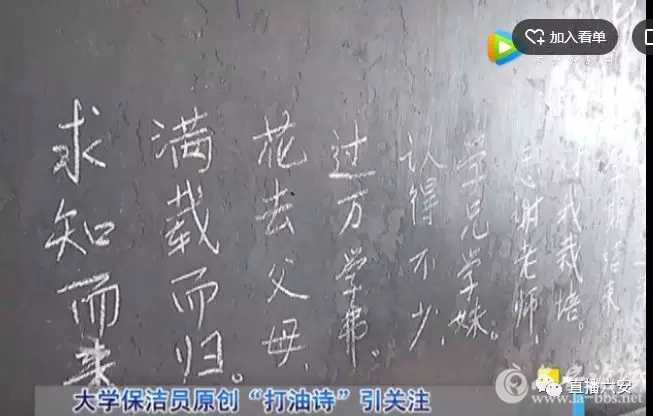 加入看单
求知而来
满载而归。
花去父母,
过万学费。
认得不少,
学兄学妹。
感谢老师,
我栽培。
结束
大学保洁员原创“打油诗”引关注
直播六安
www.la-bbs.net